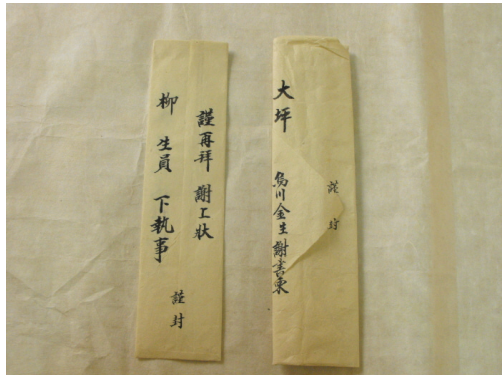 大坪
烏川金生謝書柬
謹封
謹再拜 謝上狀
柳 生員 下執事
謹封